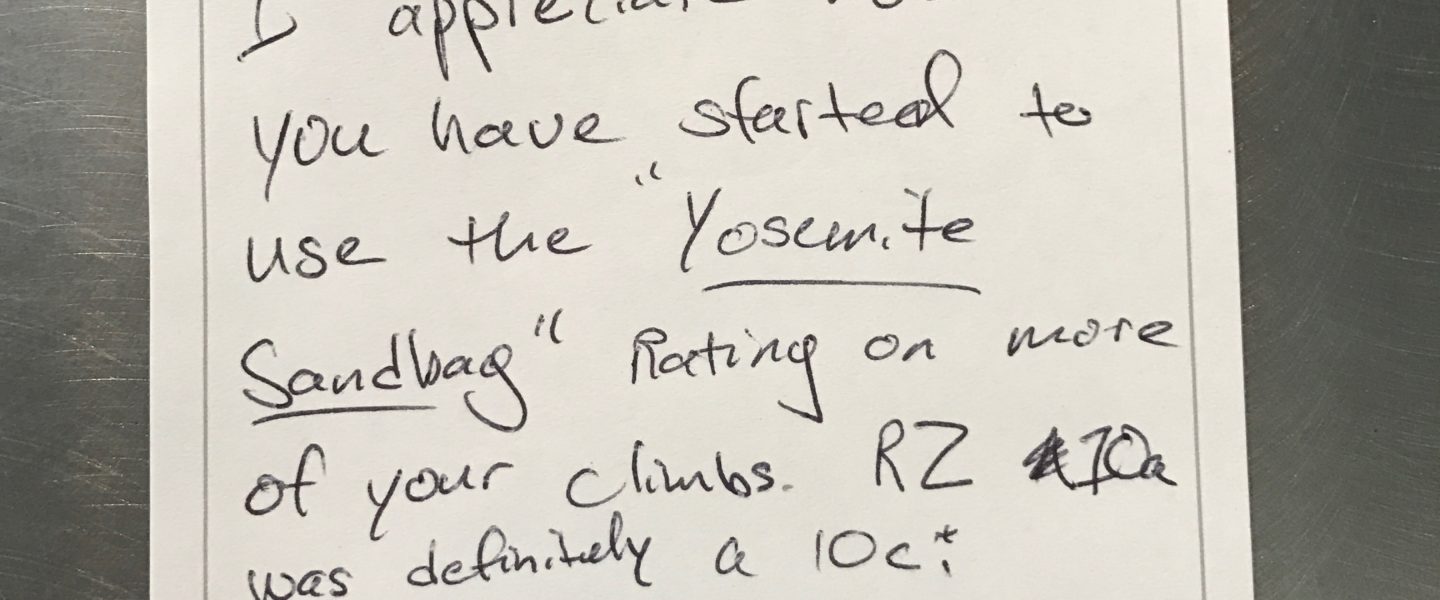 I appreciate
you have started to
use the "Yosemite
Sandbag" Rating on more
of your climbs. RZ 10a
was definitely a 10c!